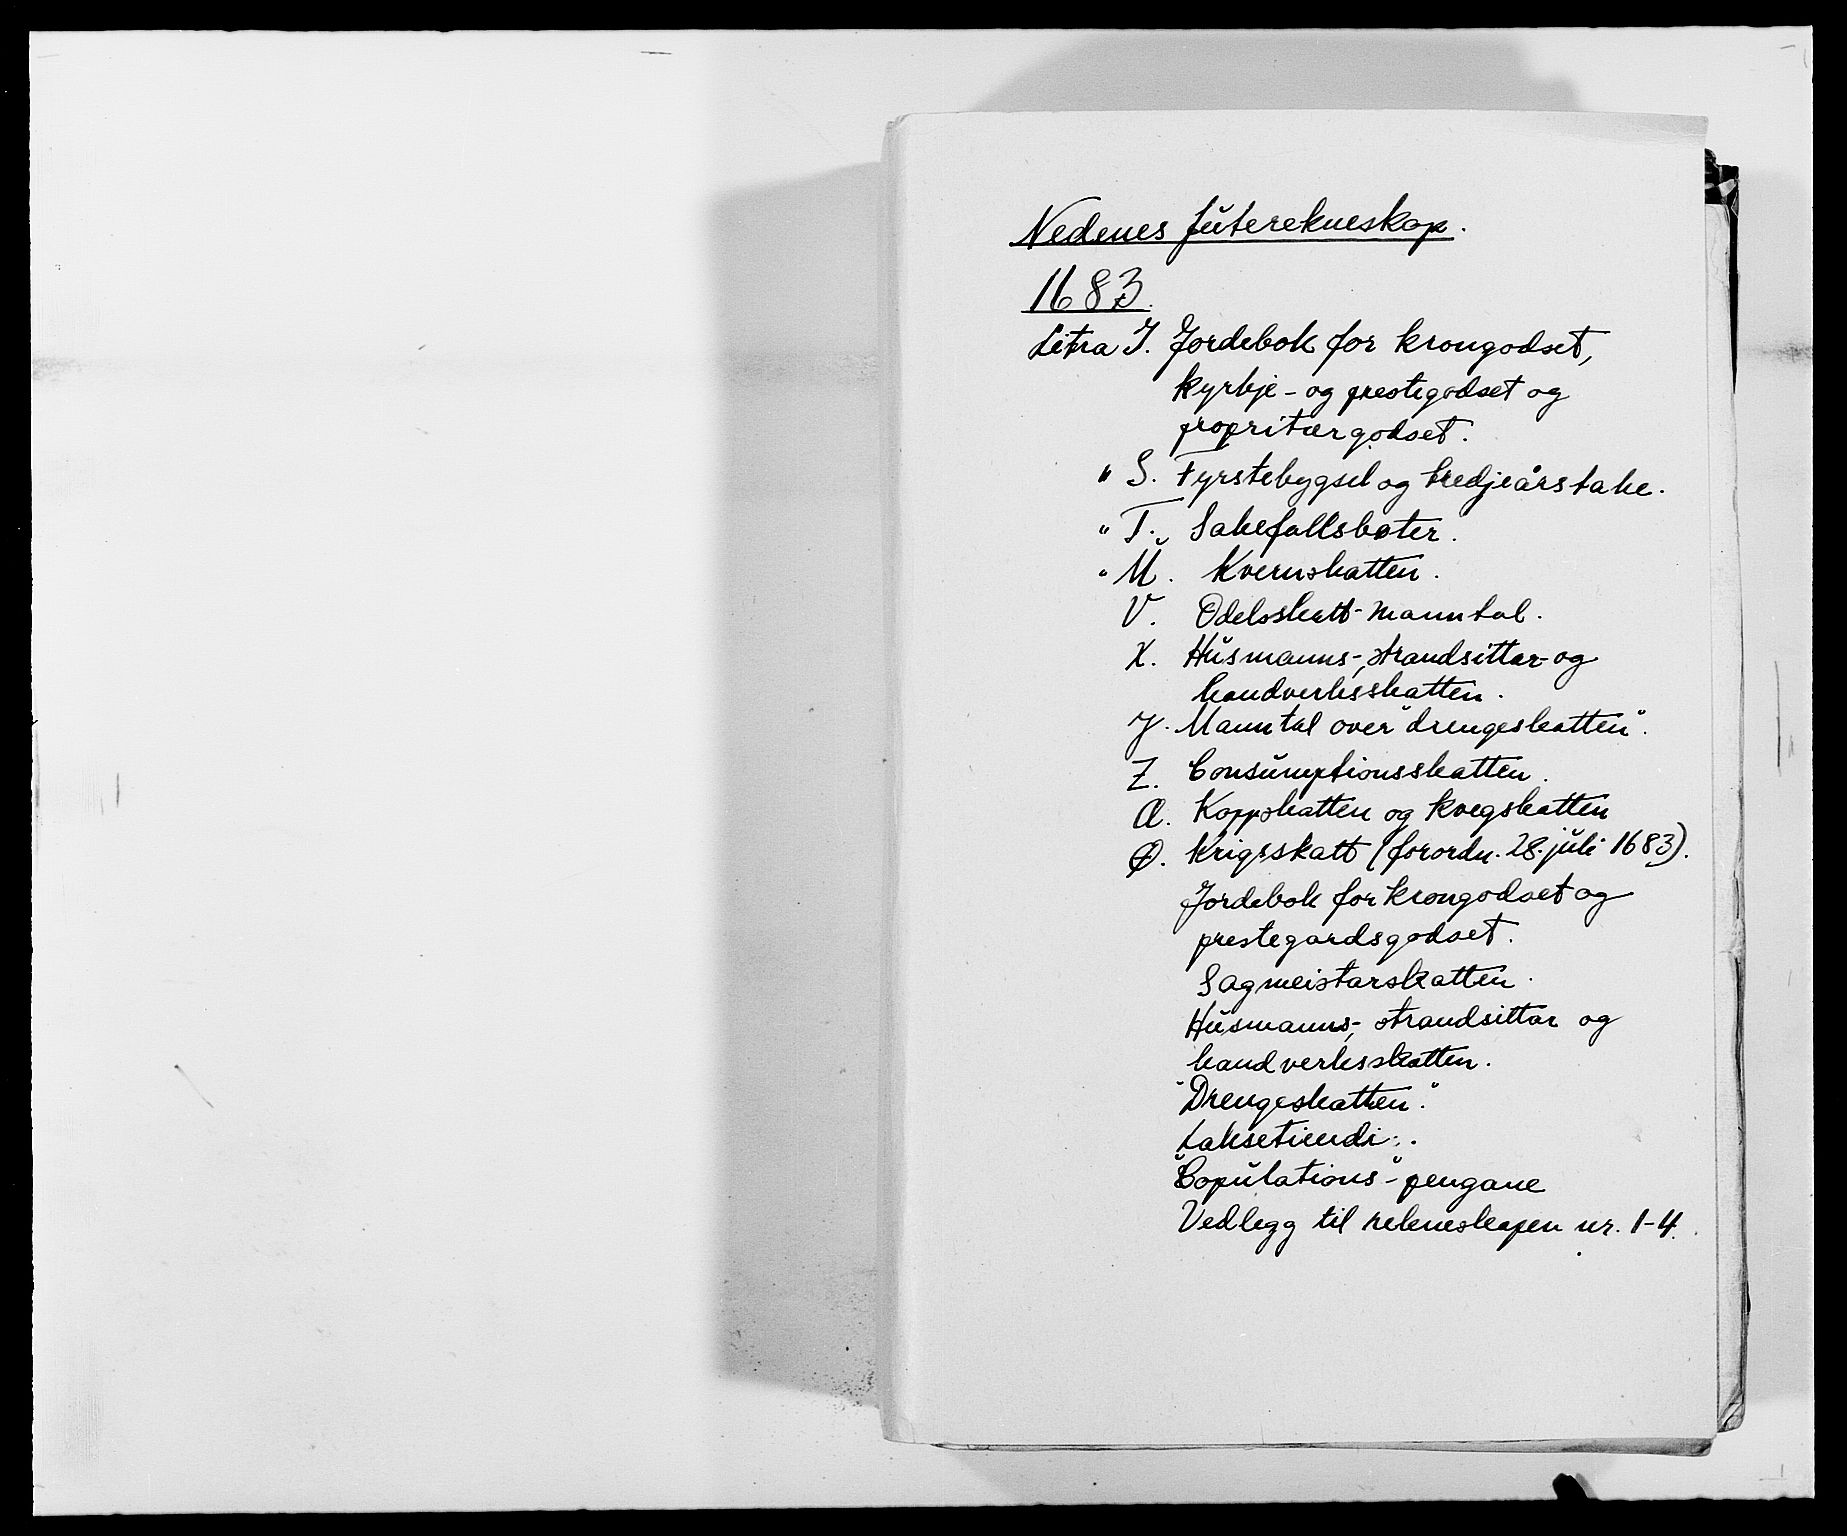 Nedenes futerekneskap.
1683.
Litra I. Jordebok for krongodset,
kyrkje- og prestegodset og
propritærgodset.
" S. Fyrstebygsel og tredjeårstake.
" T. Sakefallsbøter.
" U. Kvernskatten.
V. Odelsskatt-manntal.
X. Husmanns-, strandsittar- og
handverksskatten.
Y. Manntal over "drengeskatten".
Z. Consumptionsskatten.
Æ. Koppskatten og kvegskatten
Ø. Krigsskatt (forordn. 28. juli 1683).
Jordebok for krongodset og
prestegardsgodset.
Sagmeistarskatten.
Husmanns-, strandsittar og
handverksskatten.
"Drengeskatten".
Laksetiendi.
"Copulations"-pengane
Vedlegg til rekneskapen nr. 1-4.